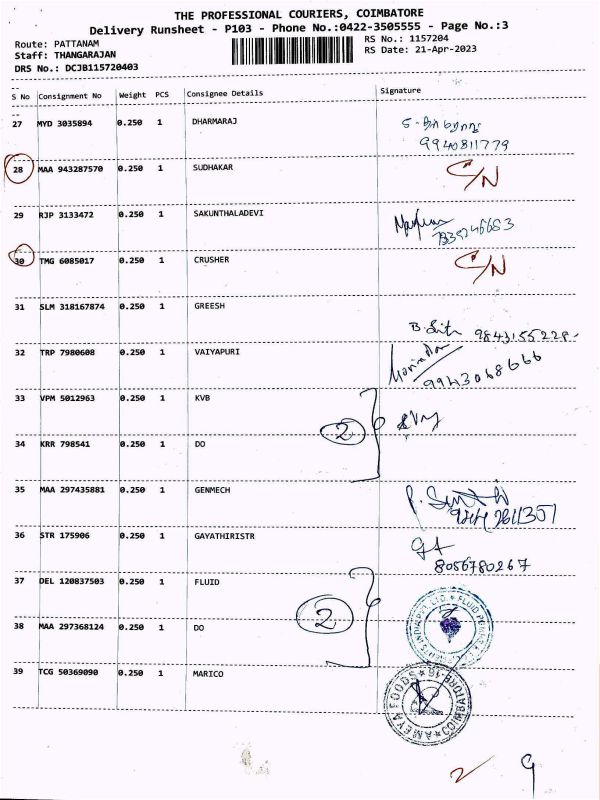 THE PROFESSIONAL COURIERS, COIMBATORE
Delivery Runsheet - P103 - Phone No.:0422-3505555 - Page No.:3
Route: PATTANAM
RS No.: 1157204
Staff: THANGARAJAN
RS Date: 21-Apr-2023
DRS No.: DCJB115720403
S No Consignment No Weight PCS Consignee Details Signature
27 MYD 3035894 0.250 1 DHARMARAJ
9940811779
28 MAA 943287570 0.250 1 SUDHAKAR C/N
29 RJP 3133472 0.250 1 SAKUNTHALADEVI
30 TMG 6085017 0.250 1 CRUSHER C/N
31 SLM 318167874 0.250 1 GREESH
9843155228-
32 TRP 7980608 0.250 1 VAIYAPURI
9943068666
33 VPM 5012963 0.250 1 KVB
2
34 KRR 798541 0.250 1 DO
35 MAA 297435881 0.250 1 GENMECH
36 STR 175906 0.250 1 GAYATHIRISTR
8056780267
37 DEL 120837503 0.250 1 FLUID
2
38 MAA 297368124 0.250 1 DO
39 TCG 50369090 0.250 1 MARICO
AMEYA FOODS
COIMBATORE-18
2 9